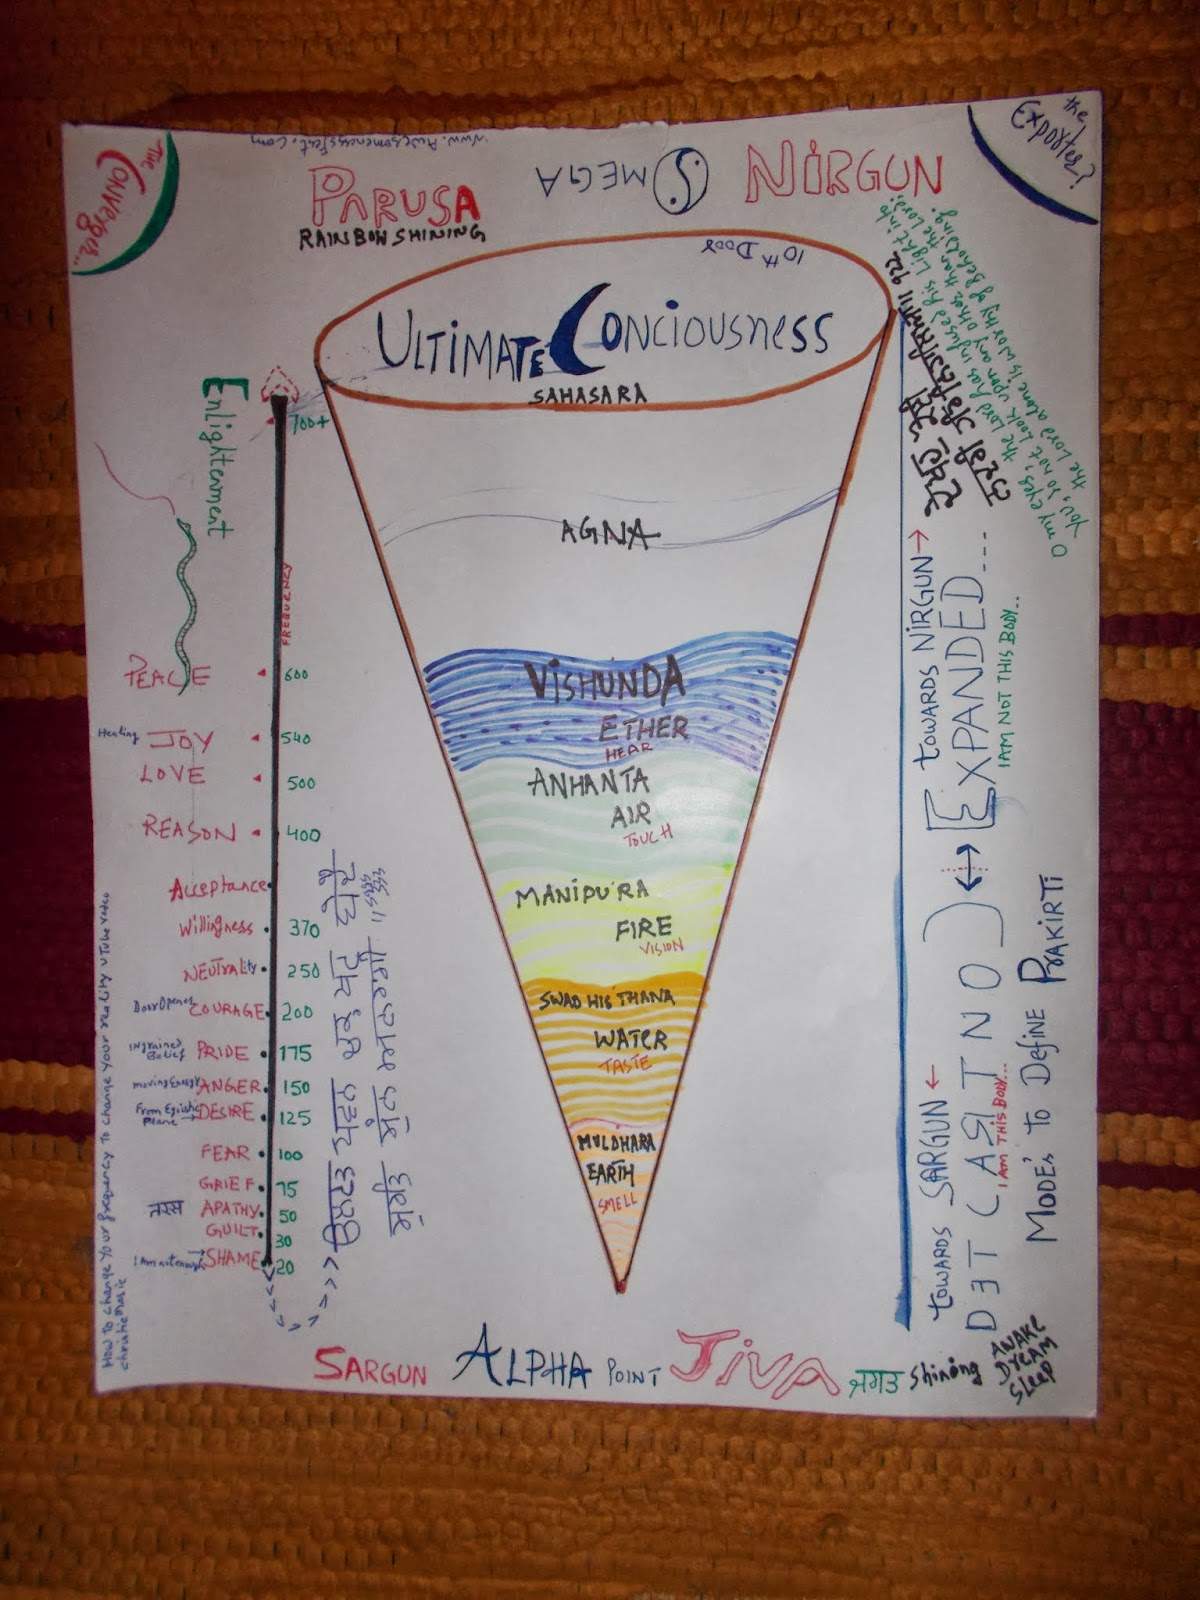 The
CONVERGE...
www.Awesomenessfest.com
PARUSA
RAINBOW SHINING
OMEGA
NIRGUN
the
Exporter?
10TH DOOR
ULTIMATE CONCIOUSNESS
SAHASARA
AGNA
VISHUNDA
ETHER
HEAR
ANHANTA
AIR
TOUCH
MANIPURA
FIRE
VISION
SWADHISTHANA
WATER
TASTE
MULDHARA
EARTH
SMELL
Enlightenment
700+
FREQUENCY
PEACE 600
Healing JOY 540
LOVE 500
REASON 400
Acceptance
Willingness 370
NEUTRALity 250
Door Opener COURAGE 200
ingrained Belief PRIDE 175
moving Energy ANGER 150
From Egoistic Plane → DESIRE 125
FEAR 100
GRIEF 75
तरस APATHY 50
GUILT 30
I Am not enough → SHAME 20
How to change your frequency to change your reality
christie Marie
O my eyes, the Lord has infused his Light into
you, do not look upon any other than the Lord.
the Lord alone is worthy of Beholding.
922
towards NIRGUN →
[EXPANDED...
I AM NOT THIS BODY...
towards SARGUN ←
I AM THIS BODY...
MODE's to Define PRAKIRTI
SARGUN ALPHA POINT JIVA ਜਗਤ Shining
AWAKE
DREAM
SLEEP